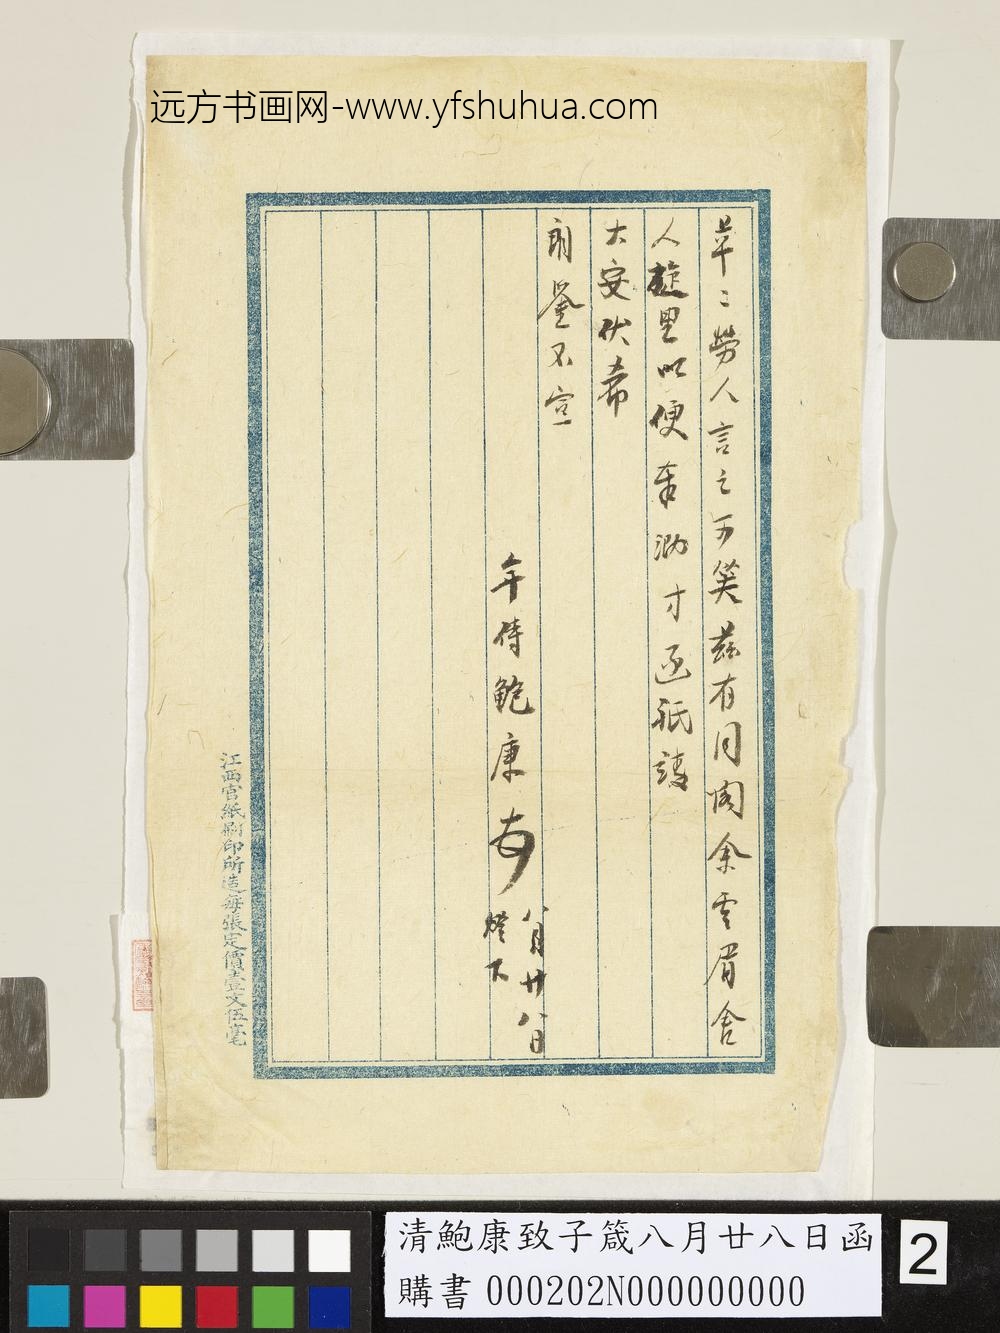 远方书画网-www.yfshuhua.com
草々勞人言之可笑茲有同閣余雲眉舍
人旋里以便奉泐寸函祇請
大安伏希
朗鉴不宣
年侍鮑康
八月廿八日
燈下
江西官紙刷印所造每張定價壹文伍毫
清鮑康致子箴八月廿八日函
購書 000202N000000000
2